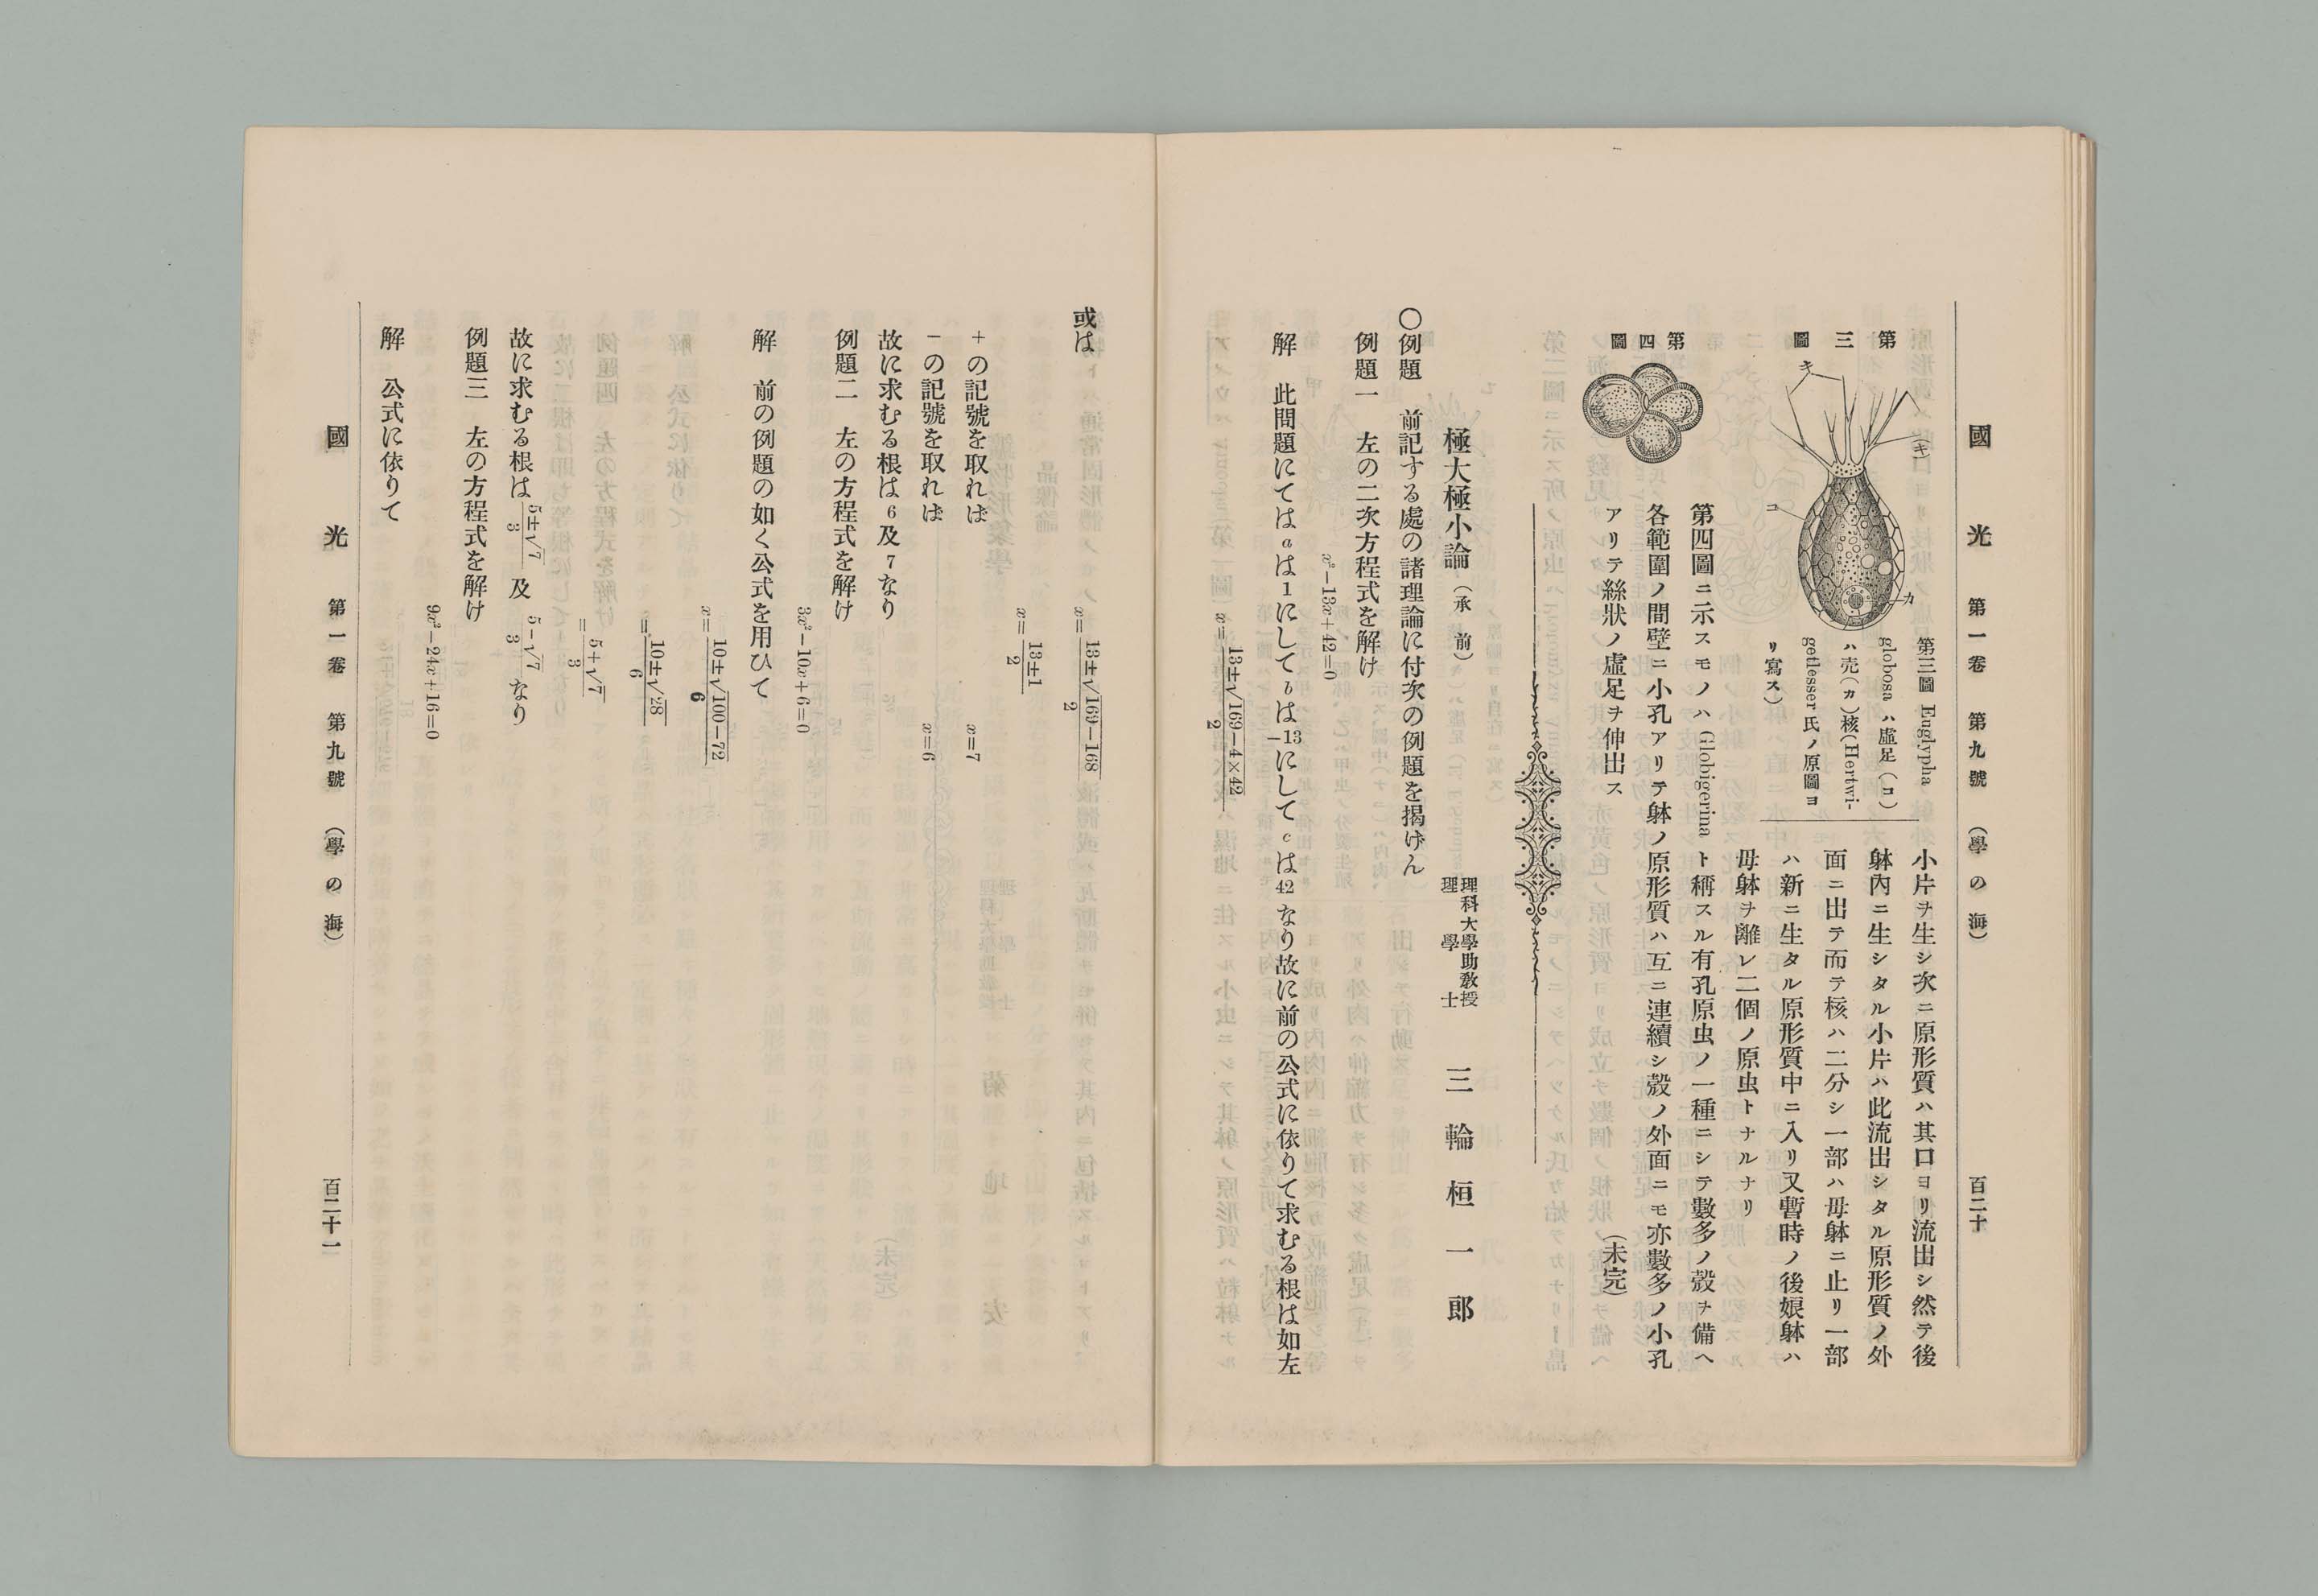 國光 第一卷 第九號 (學の海) 百二十
第三圖
キ
(キ)
コ
カ
第三圖 Euglypha
globosa ハ虛足(コ)
ハ売(カ)核(Hertwi-
getlesser 氏ノ原圖ヨ
リ寫ス)
小片ヲ生シ次ニ原形質ハ其口ヨリ流出シ然テ後
躰內ニ生シタル小片ハ此流出シタル原形質ノ外
面ニ出テ而テ核ハ二分シ一部ハ母躰ニ止リ一部
ハ新ニ生タル原形質中ニ入リ又暫時ノ後娘躰ハ
母躰ヲ離レ二個ノ原虫トナルナリ
第四圖
第四圖ニ示スモノハ Globigerina ト稱スル有孔原虫ノ一種ニシテ數多ノ殼ヲ備ヘ
各範圍ノ間壁ニ小孔アリテ躰ノ原形質ハ互ニ連續シ殼ノ外面ニモ亦數多ノ小孔
アリテ絲狀ノ虛足ヲ伸出ス (未完)
極大極小論 (承前) 理科大學助敎授 理學士 三輪桓一郎
〇例題 前記する處の諸理論に付次の例題を揭げん
例題一 左の二次方程式を解け
x²−13x+42=0
解 此問題にては a は 1 にして b は −13 にして c は 42 なり故に前の公式に依りて求むる根は如左
x=(13±√169−4×42)/2
或は x=(13±√169−168)/2
x=(13±1)/2
+の記號を取れば x=7
−の記號を取れば x=6
故に求むる根は 6 及 7 なり
例題二 左の方程式を解け
3x²−10x+6=0
解 前の例題の如く公式を用ひて
x=(10±√100−72)/6
=(10±√28)/6
=(5+√7)/3
故に求むる根は (5±√7)/3 及 (5−√7)/3 なり
例題三 左の方程式を解け
9x²−24x+16=0
解 公式に依りて
國光 第一卷 第九號 (學の海) 百二十一